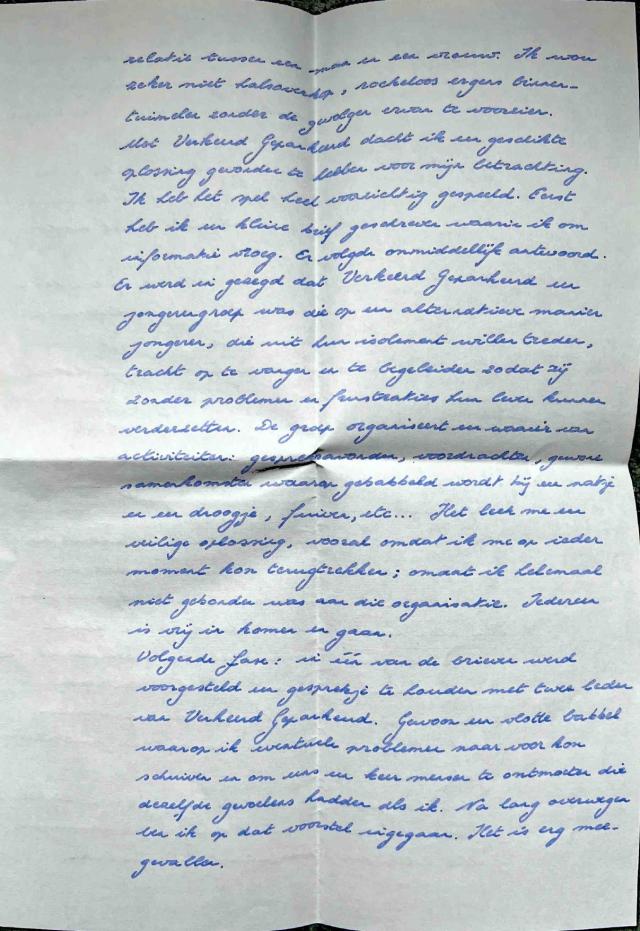 relatie tussen een man en een vrouw. Ik wou
zeker niet halsoverkop, roekeloos ergens binnen-
tuimelen zonder de gevolgen ervan te voorzien.
Met Verkeerd Geparkeerd dacht ik een geschikte
oplossing gevonden te hebben voor mijn betrachting.
Ik heb het spel heel voorzichtig gespeeld. Eerst
heb ik een kleine brief geschreven waarin ik om
informatie vroeg. Er volgde onmiddellijk antwoord.
Er werd in gezegd dat Verkeerd Geparkeerd een
jongerengroep was die op een alternatieve manier
jongeren, die uit hun isolement willen treden,
tracht op te vangen en te begeleiden zodat zij
zonder problemen en frustraties hun leven kunnen
verderzetten. De groep organiseert een waaier van
activiteiten: gespreksavonden, voordrachten, gewone
samenkomsten waaraan gebabbeld wordt bij een natje
en een droogje, fuiven, etc... Het leek me een
veilige oplossing, vooral omdat ik me op ieder
moment kon terugtrekken; omdat ik helemaal
niet gebonden was aan die organisatie. Iedereen
is vrij in komen en gaan.
Volgende fase: in één van de brieven werd
voorgesteld een gesprekje te houden met twee leden
van Verkeerd Geparkeerd. Gewoon een vlotte babbel
waarop ik eventuele problemen naar voor kon
schuiven en om eens een keer mensen te ontmoeten die
dezelfde gevoelens hadden als ik. Na lang overwegen
ben ik op dat voorstel ingegaan. Het is erg mee-
gevallen.